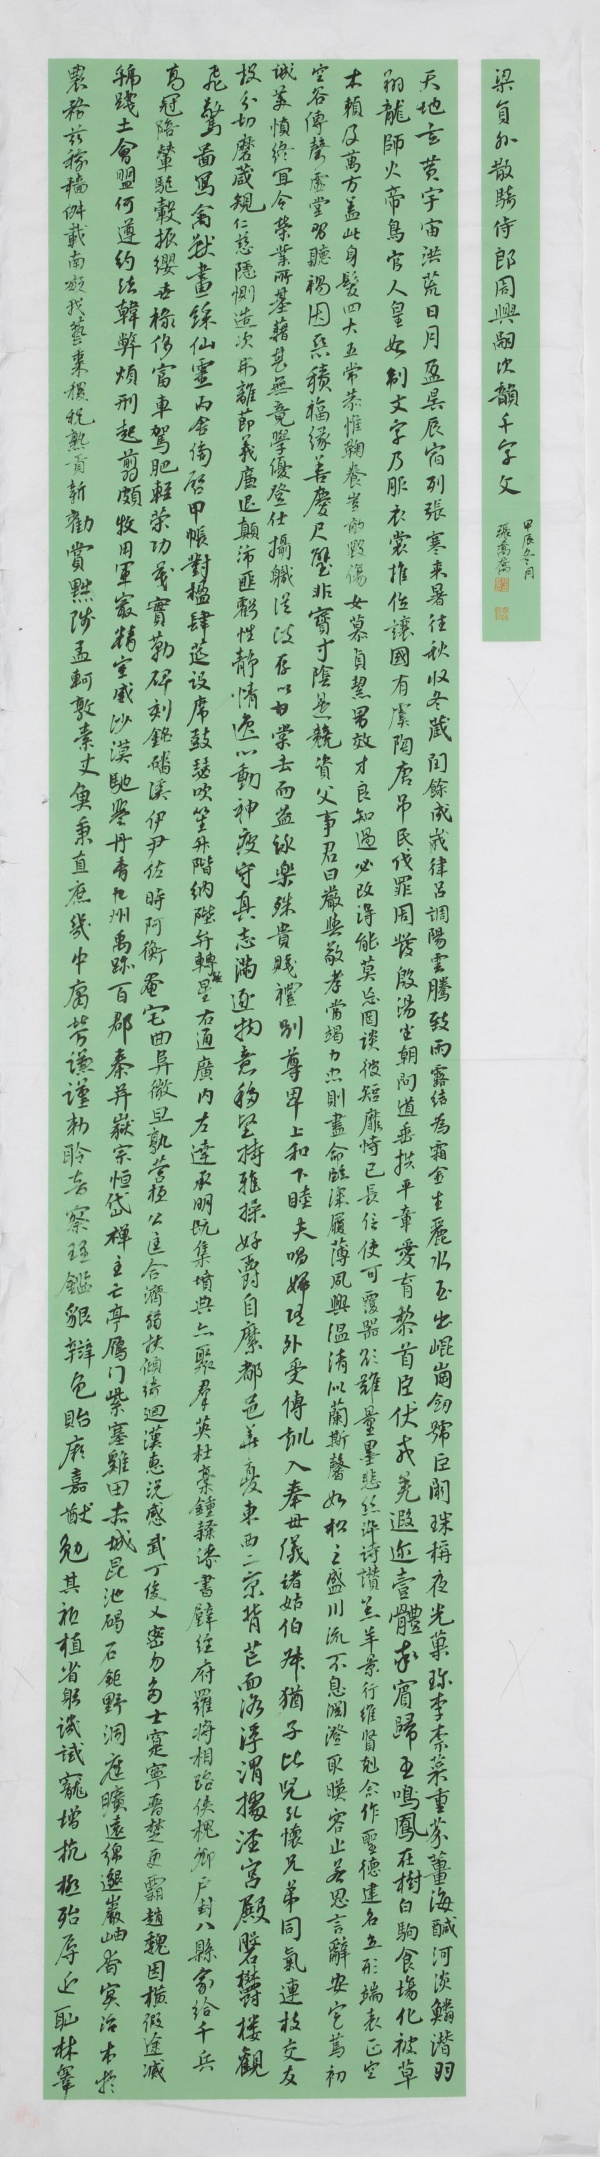 梁員外散騎侍郎周興嗣次韻千字文
甲辰冬月
張喬喬
天地玄黃宇宙洪荒日月盈昃辰宿列張寒來暑往秋收冬藏閏餘成歲律呂調陽雲騰致雨露結為霜金生麗水玉出崐崗劒號巨闕珠稱夜光菓珍李柰菜重芥薑海醎河淡鱗潛羽
翔龍師火帝鳥官人皇始制文字乃服衣裳推位讓國有虞陶唐弔民伐罪周發殷湯坐朝問道垂拱平章愛育黎首臣伏戎羌遐邇壹體率賓歸王鳴鳳在樹白駒食場化被草
木賴及萬方蓋此身髮四大五常恭惟鞠養豈敢毀傷女慕貞絜男效才良知過必改得能莫忘罔談彼短靡恃己長信使可覆器欲難量墨悲絲染詩讚羔羊景行維賢剋念作聖德建名立形端表正空
空谷傳聲虛堂習聽禍因惡積福緣善慶尺璧非寶寸陰是競資父事君曰嚴與敬孝當竭力忠則盡命臨深履薄夙興溫清似蘭斯馨如松之盛川流不息淵澄取暎容止若思言辭安定篤初
誠美慎終宜令榮業所基藉甚無竟學優登仕攝職從政存以甘棠去而益詠樂殊貴賤禮別尊卑上和下睦夫唱婦隨外受傅訓入奉母儀諸姑伯叔猶子比兒孔懷兄弟同氣連枝交友
投分切磨箴規仁慈隱惻造次弗離節義廉退顛沛匪虧性靜情逸心動神疲守真志滿逐物意移堅持雅操好爵自縻都邑華夏東西二京背芒面洛浮渭據涇宮殿磐欝樓觀
飛驚圖寫禽獸畫綵仙靈丙舍傍啓甲帳對楹肆筵設席鼓瑟吹笙升階納陛弁轉疑星右通廣內左達承明既集墳典亦聚群英杜稾鍾隸漆書壁經府羅將相路俠槐卿戶封八縣家給千兵
高冠陪輦驅轂振纓世祿侈富車駕肥輕策功茂實勒碑刻銘磻溪伊尹佐時阿衡奄宅曲阜微旦孰營桓公匡合濟弱扶傾綺迴漢惠說感武丁俊乂密勿多士寔寧晉楚更霸趙魏困橫假途滅
虢踐土會盟何遵約法韓弊煩刑起翦頗牧用軍最精宣威沙漠馳譽丹青九州禹跡百郡秦并嶽宗恒岱禪主云亭鴈門紫塞雞田赤城昆池碣石鉅野洞庭曠遠綿邈巖岫杳冥治本於
農務茲稼穡俶載南畝我藝黍稷稅熟貢新勸賞黜陟孟軻敦素史魚秉直庶幾中庸勞謙謹勑聆音察理鑑貌辯色貽厥嘉猷勉其祗植省躬譏誡寵增抗極殆辱近恥林皋